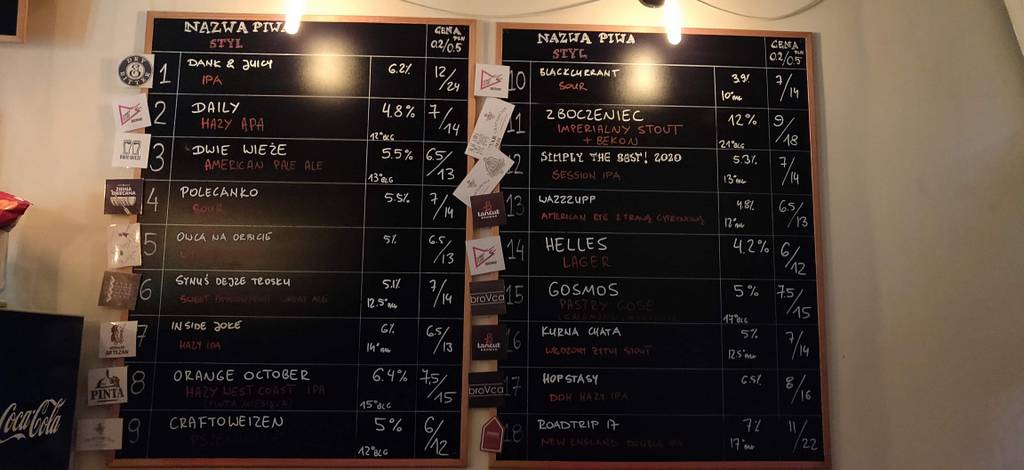 NAZWA PIWA
STYL
CENA
PLN
0.2/0.5
1 DANK & JUICY 6.2% 12/24
IPA
2 DAILY 4.8% 7/14
HAZY APA 12°BLG
3 DWIE WIEŻE 5.5% 6.5/13
AMERICAN PALE ALE 13°BLG
4 POLECANKO 5.5% 7/14
SOUR
5 OWCA NA ORBICIE 5% 6.5/13
6 SYNUŚ DEJZE TROSKU 5.1% 7/14
SWEET WHEAT ALE 12.5°BLG
7 INSIDE JOKE 6% 6.5/13
HAZY IPA 14°BLG
8 ORANGE OCTOBER 6.4% 7.5/15
HAZY WEST COAST IPA 15°BLG
9 CRAFTOWEIZEN 5% 6/12
12°BLG
NAZWA PIWA
STYL
CENA
PLN
0.2/0.5
10 BLACKCURRANT 3.9% 7/14
SOUR 10°BLG
11 ZBOCZENIEC 12% 9/18
IMPERIALNY STOUT
+ BEKON 21°BLG
12 SIMPLY THE BEST! 2020 5.3% 7/14
SESSION IPA 13°BLG
13 WAZZZUPP 4.8% 6.5/13
AMERICAN RYE Z TRAWĄ CYTRYNOWĄ 12°BLG
14 HELLES 4.2% 6/12
LAGER
15 GOSMOS 5% 7.5/15
PASTRY GOSE 17°BLG
16 KURNA CHATA 5% 7/14
WĘDZONY ŻYTNI STOUT 12.5°BLG
17 HOPSTASY 6.5% 8/16
DDH HAZY IPA
18 ROADTRIP 17 7% 11/22
NEW ENGLAND DOUBLE IPA 17°BLG
ZIEMIA OBIECANA
ARTEZAN
PINTA
ŁAŃCUT
broVca
ŁAŃCUT
broVca
Coca-Cola